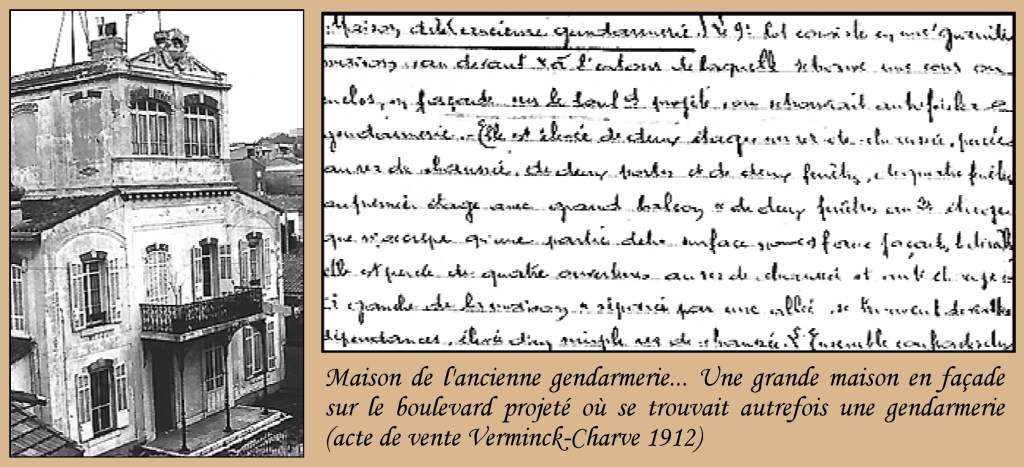 Maison de l'ancienne gendarmerie. Le 9e Lot consiste en une grande
maison, au devant et à l'entour de laquelle se trouve une cour
enclos, en façade sur le boul.d projeté, où se trouvait autrefois la
gendarmerie. - Elle est élevée de deux étages sur rez de chaussée, percée
au rez de chaussée, de deux portes et de deux fenêtres, de quatre fenêtres
au premier étage avec grand balcon et de deux fenêtres au 2e étage
que n'occupe qu'une partie de la surface
elle est percée de quatre ouvertures au rez de chaussée et
gauche de la maison, et séparée par une allée, se trouvent
dépendances, élevées d'un simple rez de chaussée. L'Ensemble
Maison de l'ancienne gendarmerie... Une grande maison en façade
sur le boulevard projeté où se trouvait autrefois une gendarmerie
(acte de vente Verminck-Charve 1912)